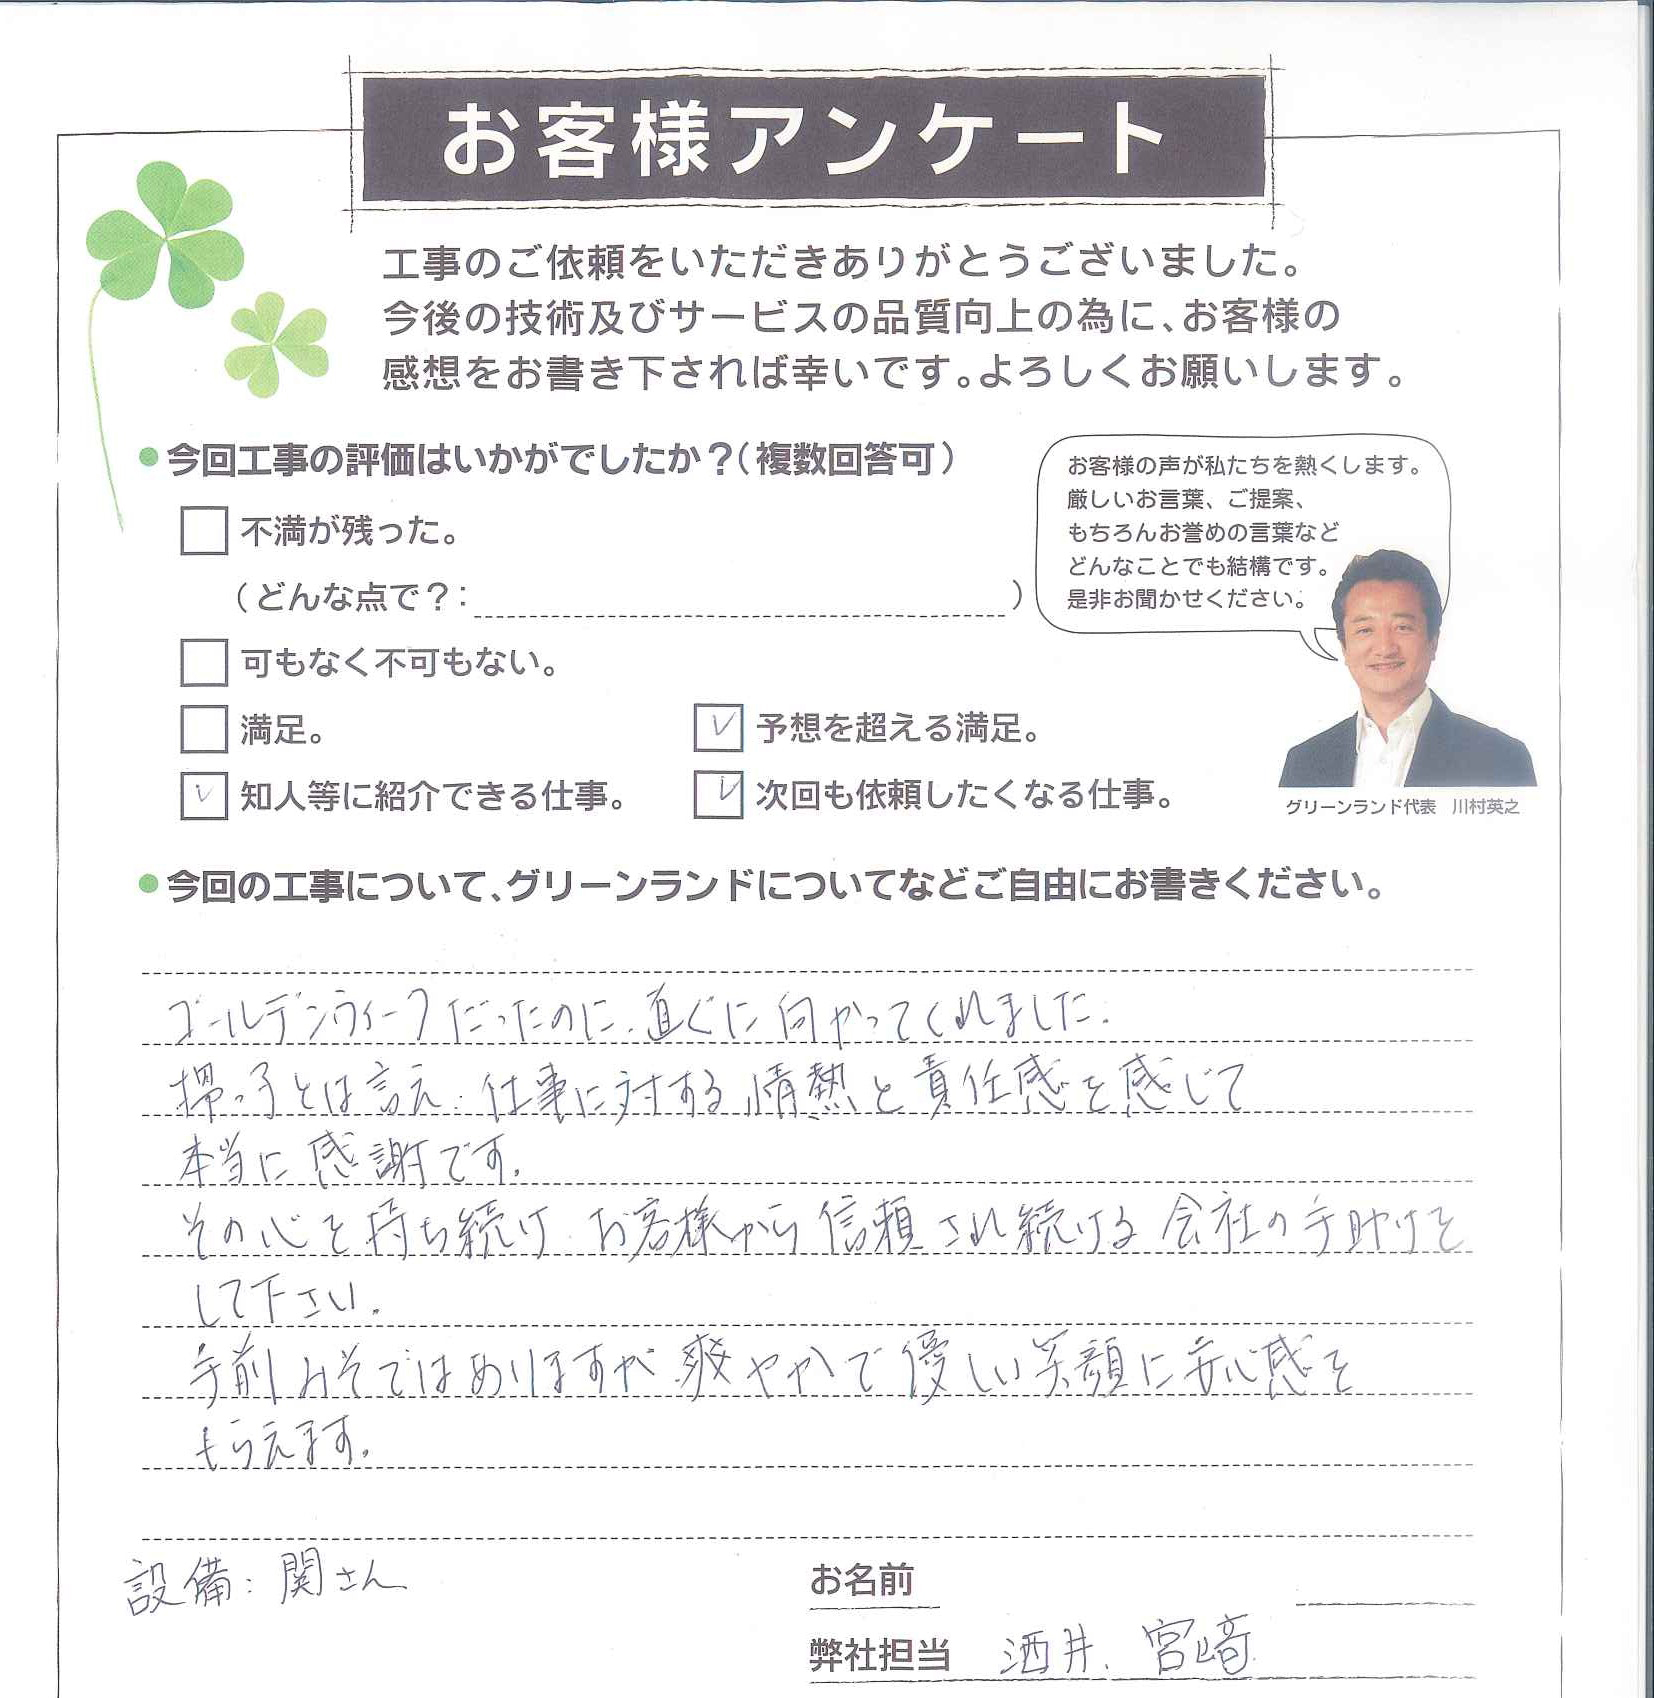 お客様アンケート
工事のご依頼をいただきありがとうございました。
今後の技術及びサービスの品質向上の為に、お客様の
感想をお書き下されば幸いです。よろしくお願いします。
●今回工事の評価はいかがでしたか?(複数回答可)
不満が残った。
(どんな点で?: )
可もなく不可もない。
満足。
✓予想を超える満足。
✓知人等に紹介できる仕事。
✓次回も依頼したくなる仕事。
お客様の声が私たちを熱くします。
厳しいお言葉、ご提案、
もちろんお誉めの言葉など
どんなことでも結構です。
是非お聞かせください。
グリーンランド代表 川村英之
●今回の工事について、グリーンランドについてなどご自由にお書きください。
ゴールデンウィークだったのに、直ぐに向かってくれました。
とは言え、仕事に対する情熱と責任感を感じて
本当に感謝です。
その心を持ち続け、お客様から信頼され続ける会社の手助けを
して下さい。
手前みそではありますが、爽やかで優しい笑顔に安心感を
もらえます。
設備:関さん
お名前
弊社担当 酒井、宮﨑